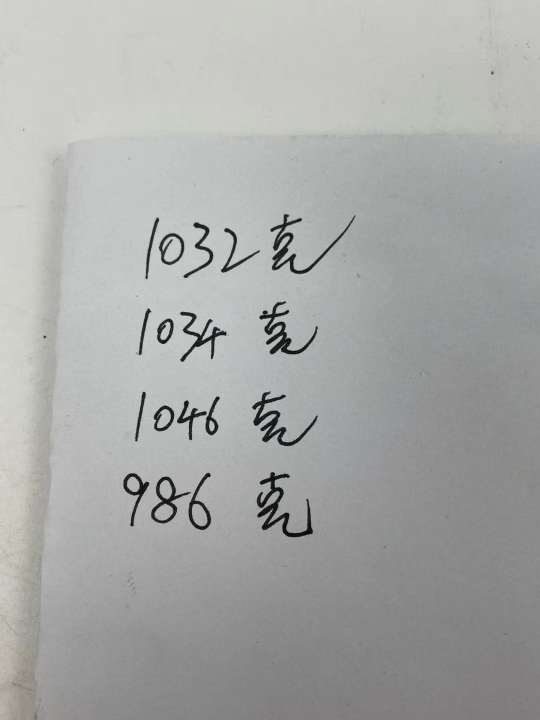 1032克
1034 克
1046 克
986 克